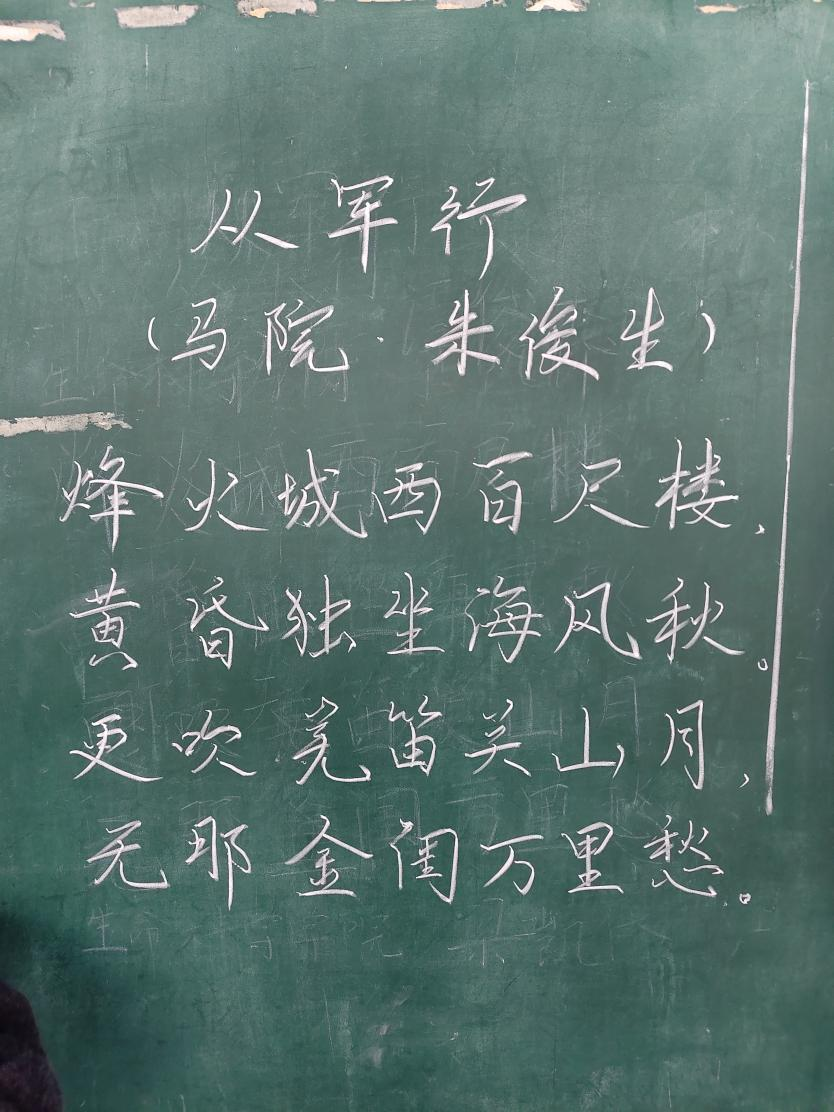 从军行
（马院·朱俊生）
烽火城西百尺楼，
黄昏独坐海风秋。
更吹羌笛关山月，
无那金闺万里愁。